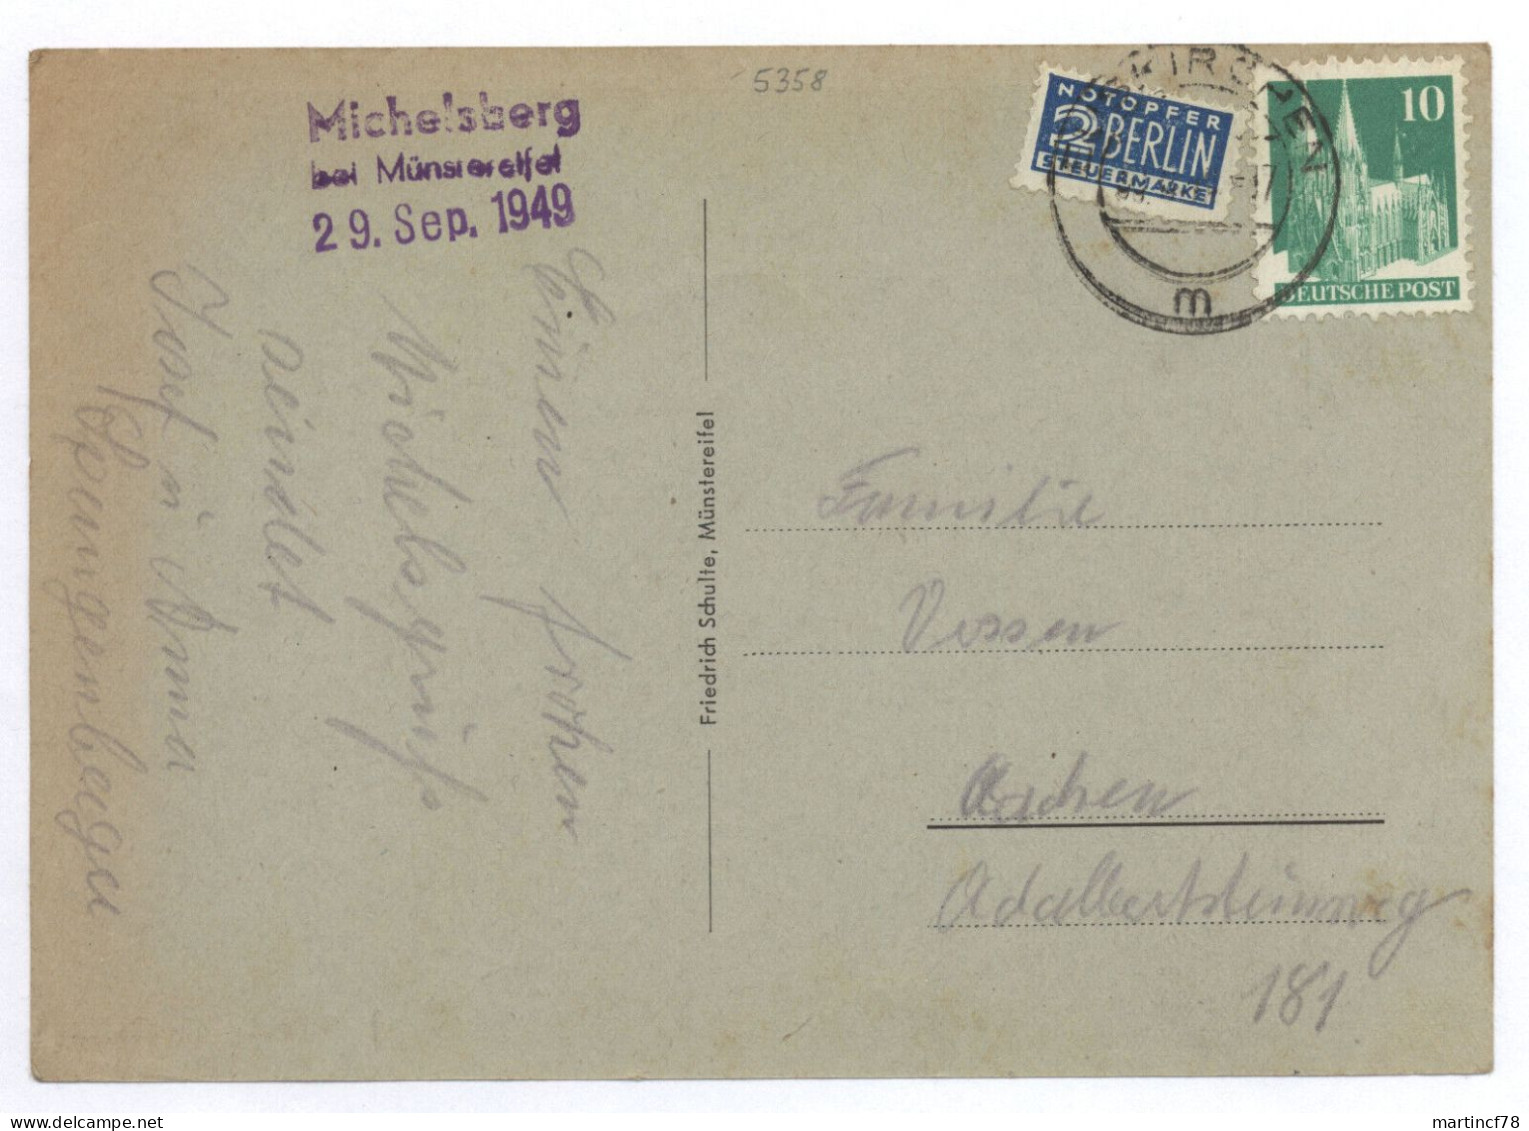 5358
Michelsberg
bei Münstereifel
29. Sep. 1949
NOTOPFER
2 BERLIN
STEUERMARKE
KIRCHEN
17
m
10
DEUTSCHE POST
Einen frohen
Michelsgruß
sendet
Josef u. Anna
Friedrich Schulte, Münstereifel
Familie
Vossen
Aachen
Adalbertsteinweg
181
martincf78